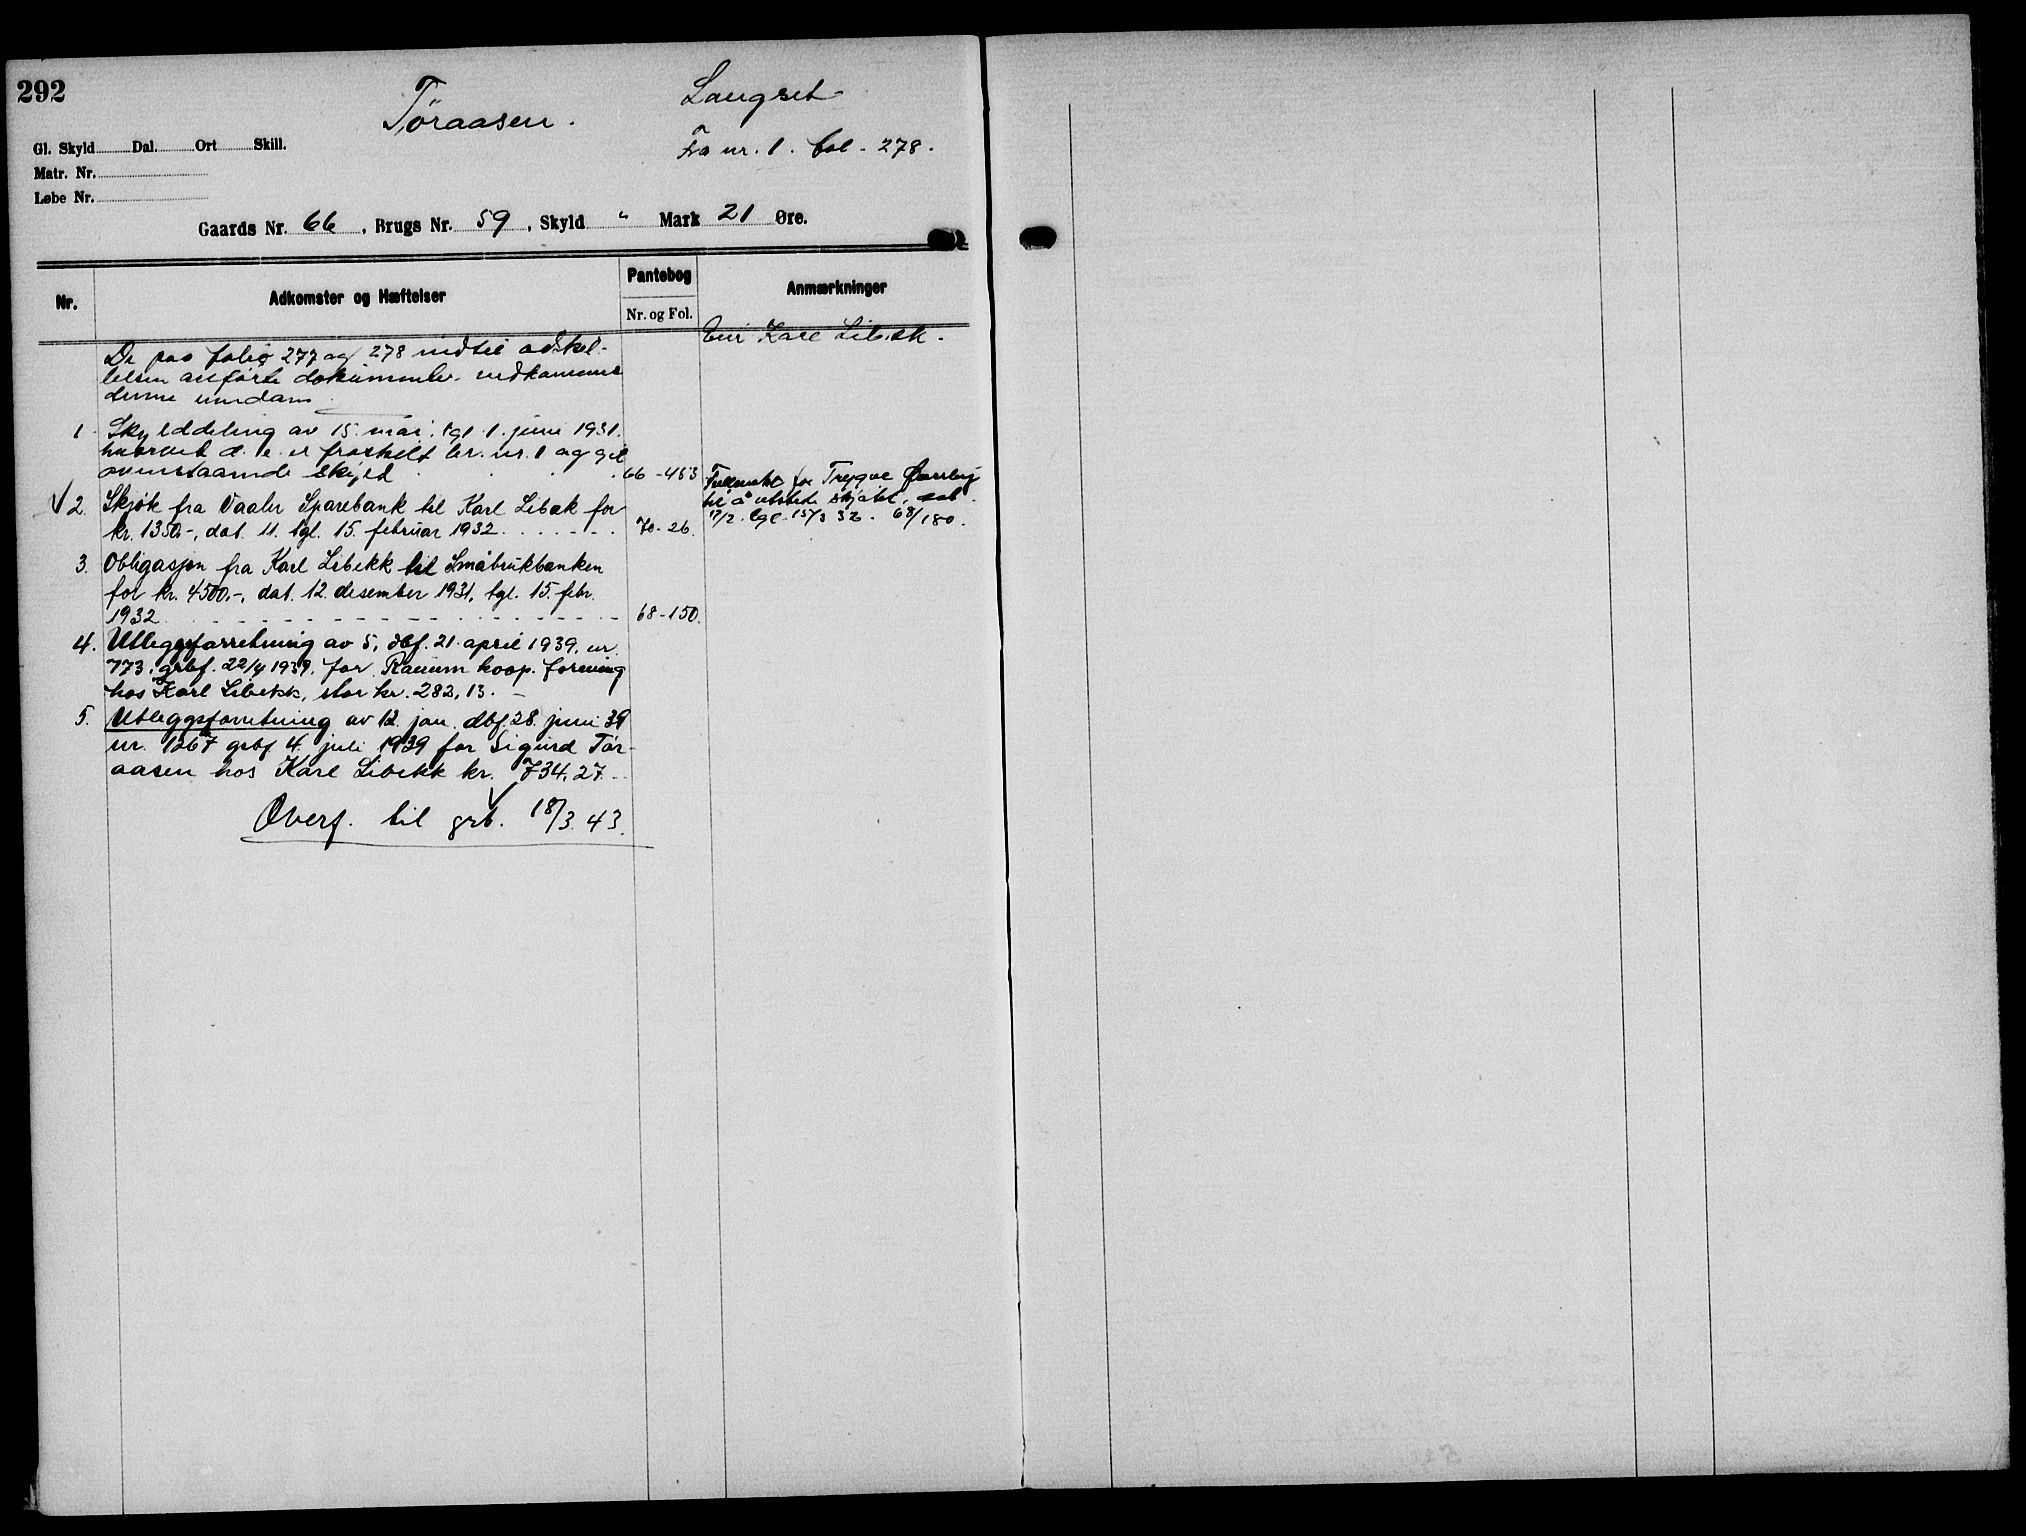 292
Tøraasen.
Langset
Fra nr. 1. bol - 278.
Gl. Skyld Dal. Ort Skill.
Matr. Nr.
Løbe Nr.
Gaards Nr. 66, Brugs Nr. 59, Skyld " Mark 21 Øre.
Nr. Adkomster og Hæftelser Pantebog Nr. og Fol. Anmærkninger
Eier Karl Libæk.
De paa folio 277 og 278 indtil adskil-
lelsen anførte dokumenter vedkommer
denne eiendom
1 Skylddeling av 15. mai, tgl. 1. juni 1931.
hvorved d. e. er fraskilt br. nr. 1 og git
ovenstaaende skyld . 66 - 453
2. Skjøte fra Vaaler Sparebank til Karl Libæk for
kr. 1350,-, dat. 11. tgl. 15. februar 1932 70 - 26.
Fullmakt for Trygve
til å utstede skjøtet, dat.
17/2. tgl. 15/3 32. 68/180.
3. Obligasjon fra Karl Libekk til Småbrukbanken
for kr. 4500,-, dat. 12. desember 1931, tgl. 15. febr.
1932 68 - 150.
4. Utleggsforretning av 5, dbf. 21. april 1939, nr.
773, grbf. 22/4 1939. for Ranum koop. forening
hos Karl Libekk, stor kr. 282,13. -
5. Utleggsforretning av 12. jan. dbf. 28. juni 39
nr. 1267 grbf 4. juli 1939 for Sigurd Tør-
aasen hos Karl Libekk kr. 734,27.
Overf. til grb. 18/3. 43.